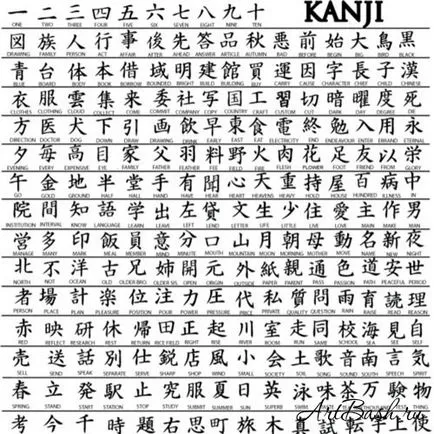 一 二 三 四 五 六 七 八 九 十 KANJI
ONE TWO THREE FOUR FIVE SIX SEVEN EIGHT NINE TEN
図 族 人 行 事 後 先 答 品 秋 悪 前 始 大 鳥 黒
DRAWING FAMILY PERSON ACT AFFAIR AFTER AHEAD ANSWER ARTICLE AUTUMN BAD BEFORE BEGIN BIG BIRD BLACK
青 台 体 本 借 域 明 建 館 買 運 因 字 長 子 漢
BLUE BOARD BODY BOOK BORROW BOUNDED BRIGHT BUILD BUILDING BUY CARRY CAUSE CHARACTER CHIEF CHILD
衣 服 雲 集 来 委 社 写 国 工 習 切 暗 曜 度 死
CLOTHES CLOTHING CLOUDS COLLECT COME COMMIT COMPANY COPY COUNTRY CRAFT CUSTOM CUT DARK DAY DEGREE DIE
方 医 犬 下 引 画 飲 早 東 食 電 終 勉 入 用 永
DIRECTION DOCTOR DOG DOWN DRAW DRAWING DRINK EARLY EAST EAT ELECTRICITY END ENDEAVOUR ENTER ERRAND ETERNAL
夕 毎 高 目 家 父 羽 料 野 火 肉 花 足 友 以 栄
EVENING EVERY EXPENSIVE EYE FAMILY FATHER FEATHER FEE FIELD FIRE FLESH FLOWER FOOT FRIEND FROM GLORY
午 金 地 半 堂 手 有 開 心 天 重 持 屋 百 病 中
GO GOLD GROUND HALF HALL HAND HAVE HEART HEAVENS HEAVY HOLD HOUSE HUNDRED ILLNESS IN
院 間 知 語 学 出 左 貸 文 生 少 住 愛 主 作 男
INSTITUTION INTERVAL KNOW LANGUAGE LEARN LEAVE LEFT LEND LETTER LIFE LITTLE LIVE LOVE MAIN MAKE MAN
営 多 印 飯 員 意 分 口 山 月 朝 母 動 名 新 夜
MANAGE MANY MARK MEAL MEMBER MIND MINUTE MOUTH MOUNTAIN MOON MORNING MOTHER MOVE NAME NEW NIGHT
北 不 洋 古 兄 姉 開 元 外 紙 親 通 色 道 安 世
NORTH NOT OCEAN OLD OLDER BRO. OLDER SIS. OPEN ORIGIN OUTSIDE PAPER PARENT PASS PASSION PATH PEACEFUL PERIOD
者 場 計 楽 位 注 力 圧 代 私 質 問 雨 育 読 理
PERSON PLACE PLAN PLEASURE POSITION POUR POWER PRESSURE PRICE PRIVATE QUALITY QUESTION RAIN RAISE READ REASON
赤 映 研 休 帰 田 正 起 川 室 走 同 校 海 見 自
RED REFLECT RESEARCH REST RETURN RICE FIELD RIGHT RISE RIVER ROOM RUN SAME SCHOOL SEA SEE SELF
売 送 話 別 仕 鋭 店 風 小 会 土 歌 音 南 言 気
SELL SEND SPEAK SEPARATE SERVE SHARP SHOP SMALL SOCIETY SOIL SONG SOUND SOUTH SPEECH SPIRIT
春 立 発 駅 止 究 服 夏 日 英 泳 味 茶 万 験 物
SPRING STAND START STATION STOP STUDY SUBMIT SUMMER SUN SUPERB SWIM TASTE TEA
考 今 千 時 題 右 思 町 旅 木 真 試 転 上 使
ArtBash.ru